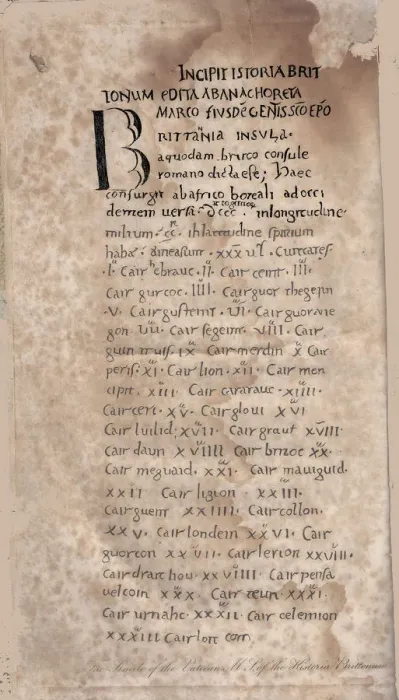 INCIPIT ISTORIA BRIT
TONUM EDITA AB ANACHORETA
MARCO EIUSDĒ GENTIS SCO EPO
BRITTANIA INSULA.
a quodam brito consule
romano dicta est; haec
consurgit ab africo boreali ad occi
dentem versū. dccc. in longitudine
milium. cc. in latitudine spatium
habet. in ea sunt. xxx
.i. Cair ebrauc. ii. Cair ceint. iii.
Cair gurcoc. iiii. Cair guorthegern
.v. Cair gusteint. vi. Cair guorane
gon. vii. Cair segeint. viii. Cair
guin truis. ix. Cair merdin x Cair
peris. xi. Cair lion. xii. Cair men
cipit. xiii. Cair caratauc. xiiii.
Cair ceri. xv. Cair gloui xvi
Cair luilid; xvii. Cair graut xviii.
Cair daun xviiii Cair britoc xx.
Cair meguaid. xxi. Cair mauiguid.
xxii Cair ligion. xxiii.
Cair guent xxiiii. Cair collon.
xxv. Cair londein xxvi. Cair
guorcon xxvii. Cair lerion xxviii.
Cair draithou. xxviiii. Cair pensa
uelcoin xxx. Cair teun. xxxi.
Cair urnahc. xxxii. Cair celemion
xxxiii Cair loit coit.
Fac Simile of the Vatican M.S. of the Historia Brittonum